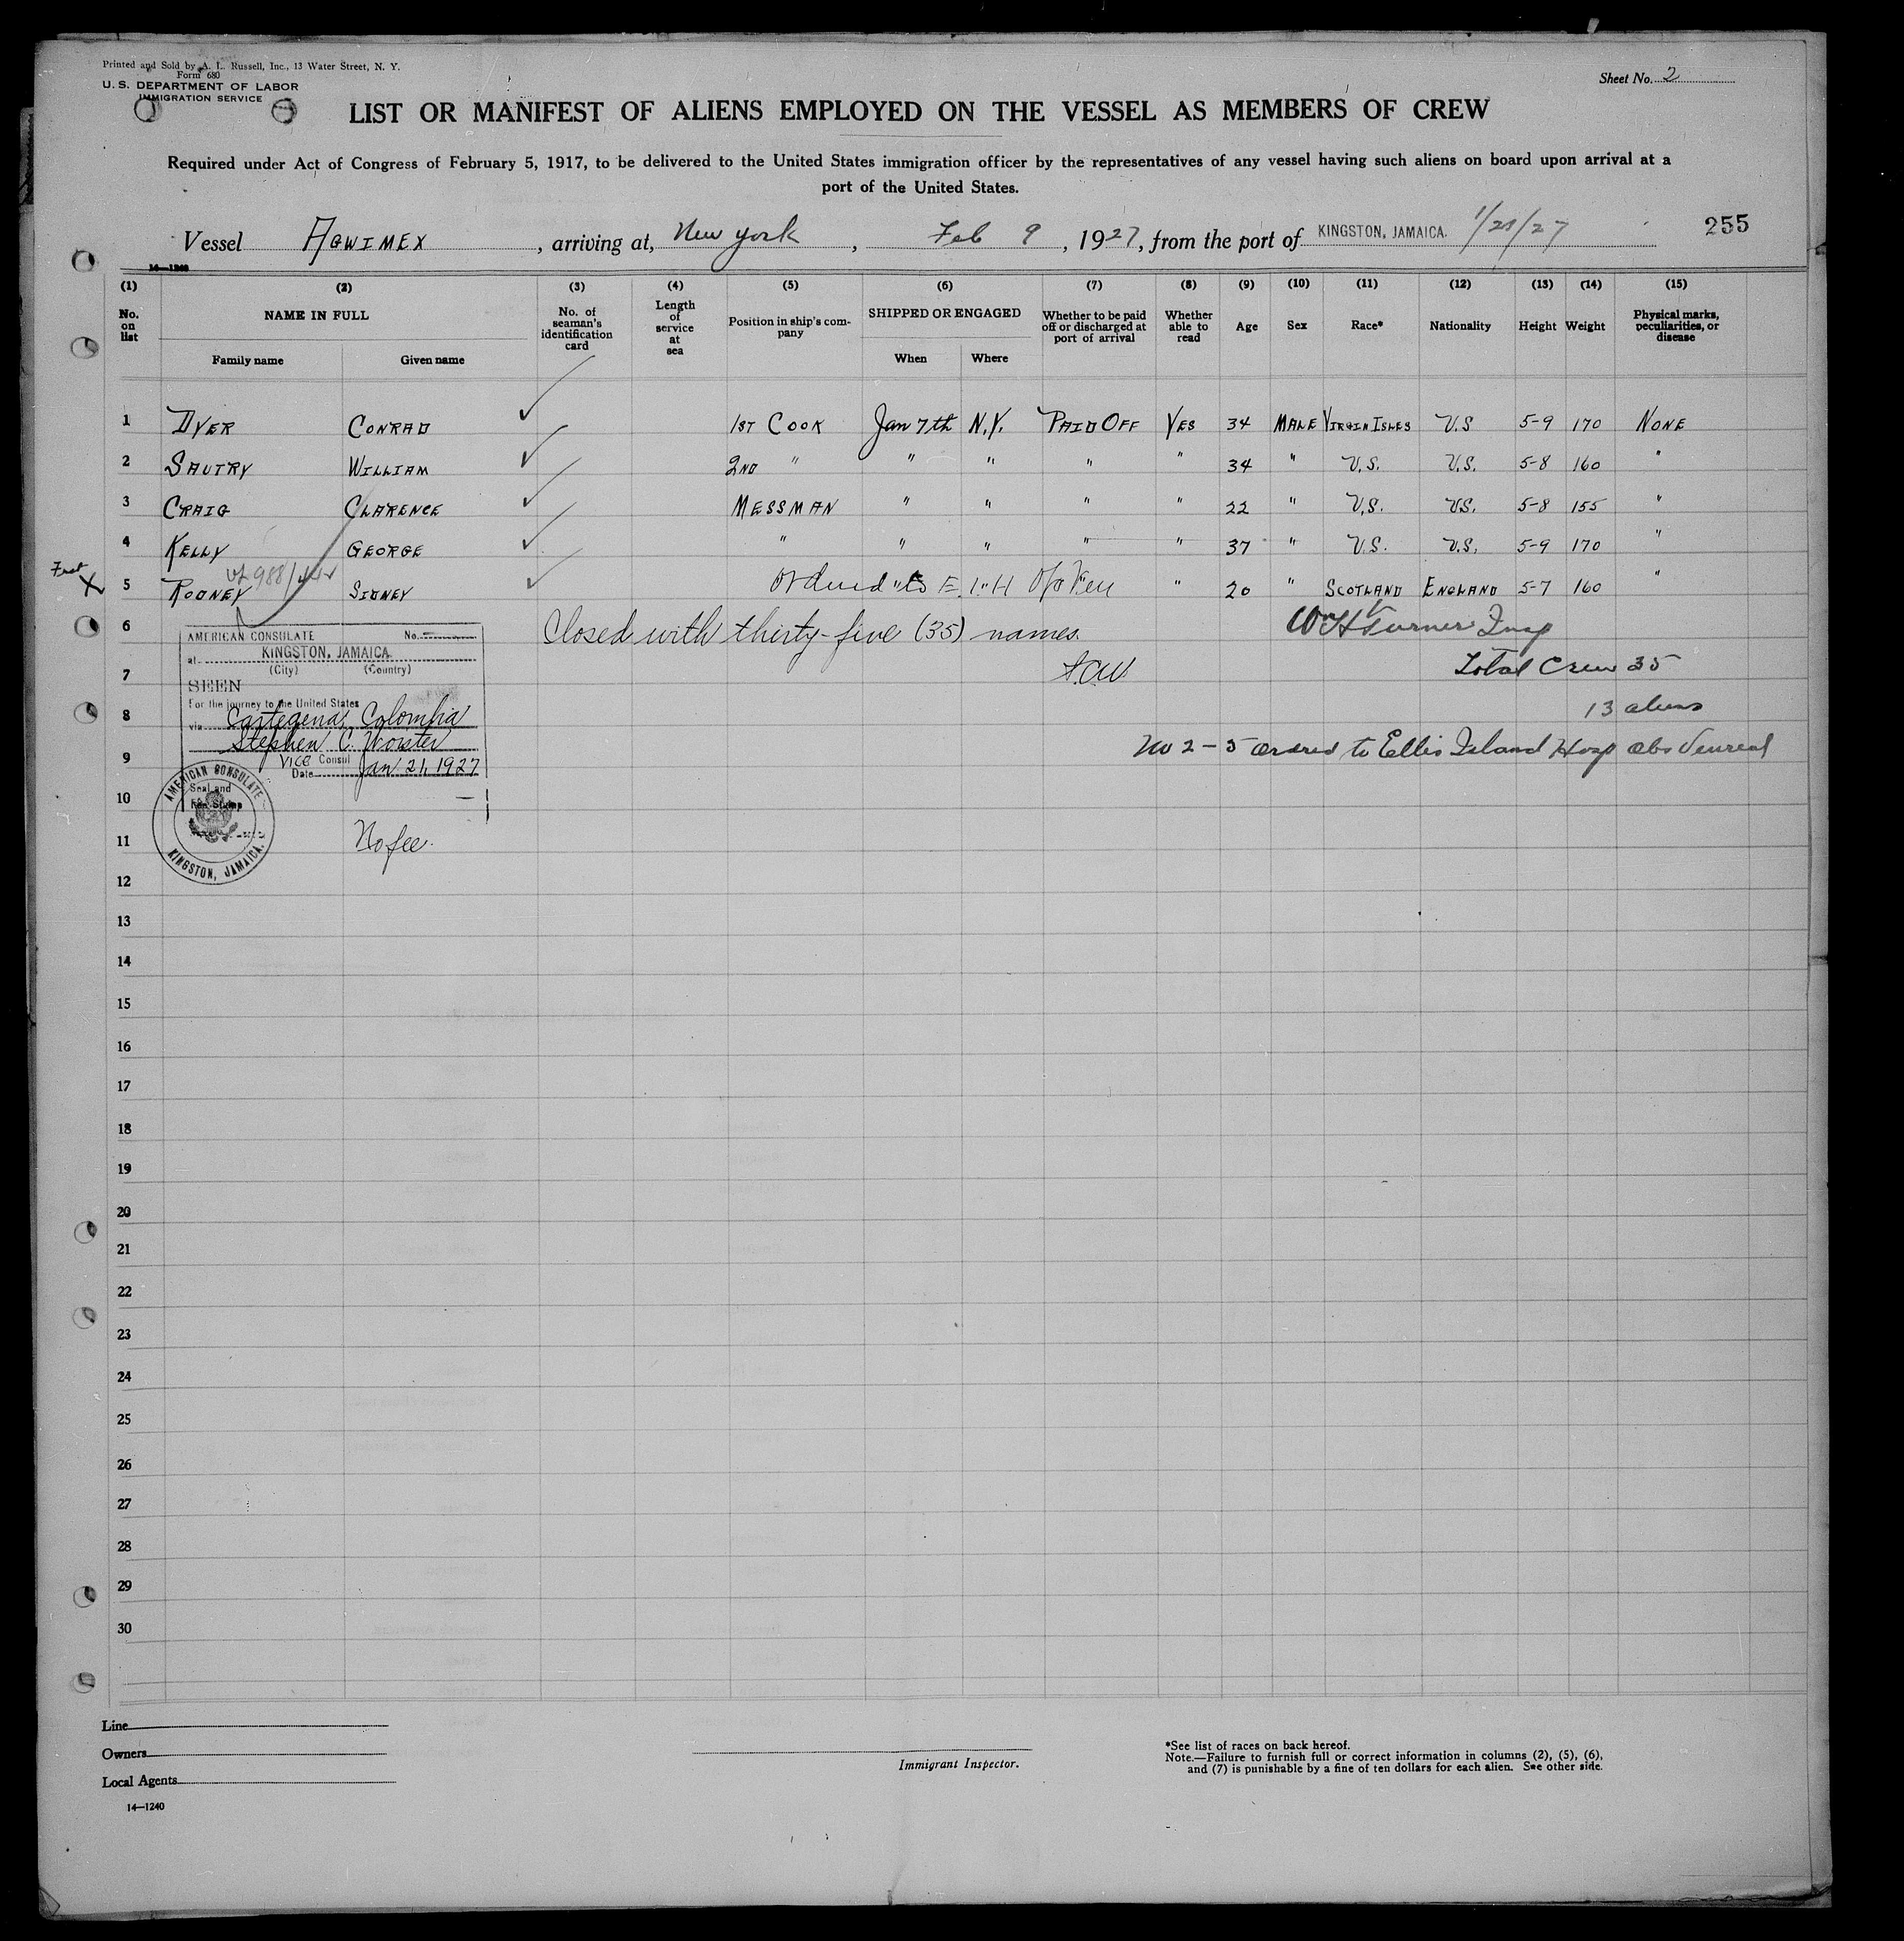 Printed and Sold by A. L. Russell, Inc., 13 Water Street, N. Y.
Form 680
U. S. DEPARTMENT OF LABOR
IMMIGRATION SERVICE
Sheet No. 2
LIST OR MANIFEST OF ALIENS EMPLOYED ON THE VESSEL AS MEMBERS OF CREW
Required under Act of Congress of February 5, 1917, to be delivered to the United States immigration officer by the representatives of any vessel having such aliens on board upon arrival at a
port of the United States.
Vessel AGWIMEX, arriving at, New York, Feb 9, 1927, from the port of KINGSTON, JAMAICA. 1/21/27 255
14—1240
(1) (2) (3) (4) (5) (6) (7) (8) (9) (10) (11) (12) (13) (14) (15)
No. on list NAME IN FULL Family name Given name No. of seaman's identification card Length of service at sea Position in ship's company SHIPPED OR ENGAGED When Where Whether to be paid off or discharged at port of arrival Whether able to read Age Sex Race* Nationality Height Weight Physical marks, peculiarities, or disease
1 DYER CONRAD ✓ 1ST COOK Jan 7th N.Y. PAID OFF YES 34 MALE VIRGIN ISLES U.S 5-9 170 NONE
2 SAUTRY WILLIAM ✓ 2ND " " " " " 34 " U.S. U.S. 5-8 160 "
3 CRAIG CLARENCE ✓ MESSMAN " " " " 22 " U.S. U.S. 5-8 155 "
4 KELLY GEORGE ✓ " " " " " 37 " U.S. U.S. 5-9 170 "
X 5 RODNEY SIDNEY ✓ Ordered to E.I.H " 20 " SCOTLAND ENGLAND 5-7 160 "
6 Closed with thirty-five (35) names. Wm H Turner Insp
AMERICAN CONSULATE No.
at KINGSTON, JAMAICA.
(City) (Country)
7 Total Crew 35
SEEN
For the journey to the United States
8 via Cartegena, Colombia 13 aliens
Stephen C. Worster
No 2 - 5 ordred to Ellis Island Hosp obs Venreal
9 VICE Consul
Date Jan 21, 1927
Seal and
Fee Stamp
AMERICAN CONSULATE
KINGSTON, JAMAICA.
10
11 No fee.
12
13
14
15
16
17
18
19
20
21
22
23
24
25
26
27
28
29
30
Line
Owners
Local Agents
14—1240
Immigrant Inspector.
*See list of races on back hereof.
Note.—Failure to furnish full or correct information in columns (2), (5), (6),
and (7) is punishable by a fine of ten dollars for each alien. See other side.